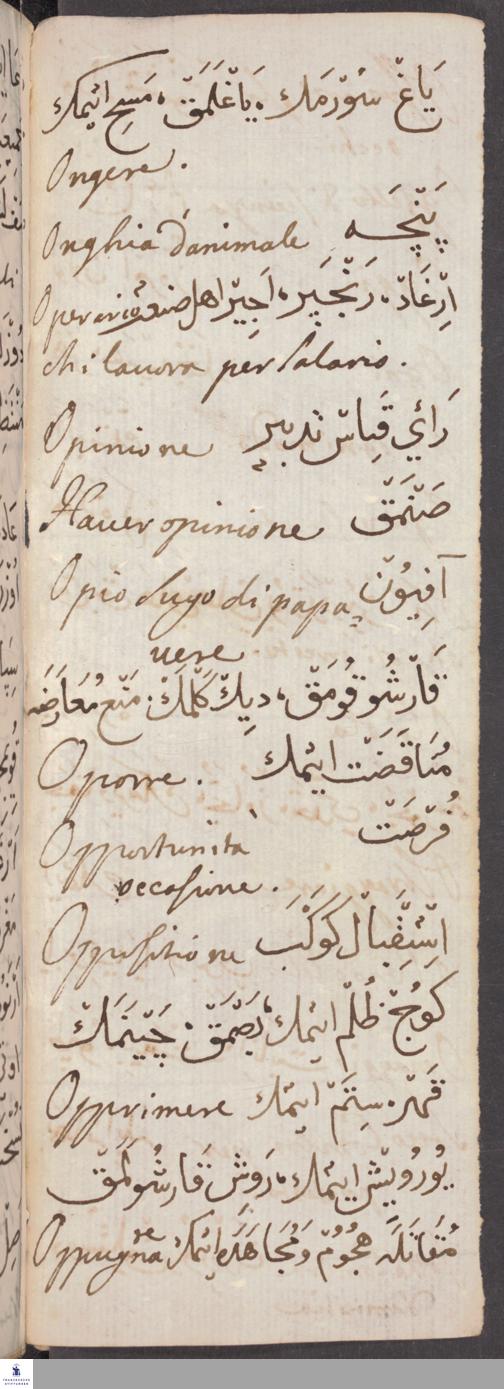 يَاغْ سُوْرْمَك ، يَاغْلَمَقْ ، مَسِح ايْتمك
Ongere.
Onghia d'animale پَنْچَه
Operario اِرْغَادْ ، رَنْجْبَر ، اَجِيْر اهل صنعت
chi lauora per salario.
Opinione رَائي قِيَاسْ تدبير
Hauer opinione صَنْمَقْ
Opio sugo di papa= آفِيُوْن
uere
قَارْشُو قُومَقْ ، دِيكْ كَلْمَكْ . مَنْع مُعَارَضَه
Oporre. مُنَاقَضَتْ ايْتمك
Opportunità فُرْصَتْ
occasione.
Oppositione اِسْتِقْبَالْ كَوْكَبْ
كُوجْ ظُلْم ايتمك ، بَصْمَقْ . چَيْنَمَكْ
Opprimere قَهْر . سِتَمْ ايتمك
يُورُويِشْ ايتمك ، رَوِشْ قَارشُولَمَقْ
Oppugnare مُقَاتَلَه هُجُومْ وَ مُجَاهَدَه ايتمك